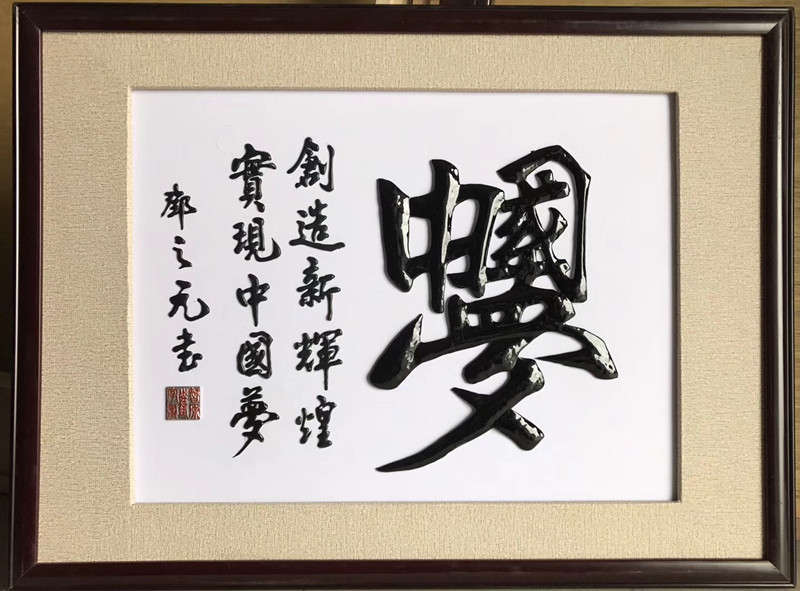 中國夢
創造新輝煌
實現中國夢
之元書